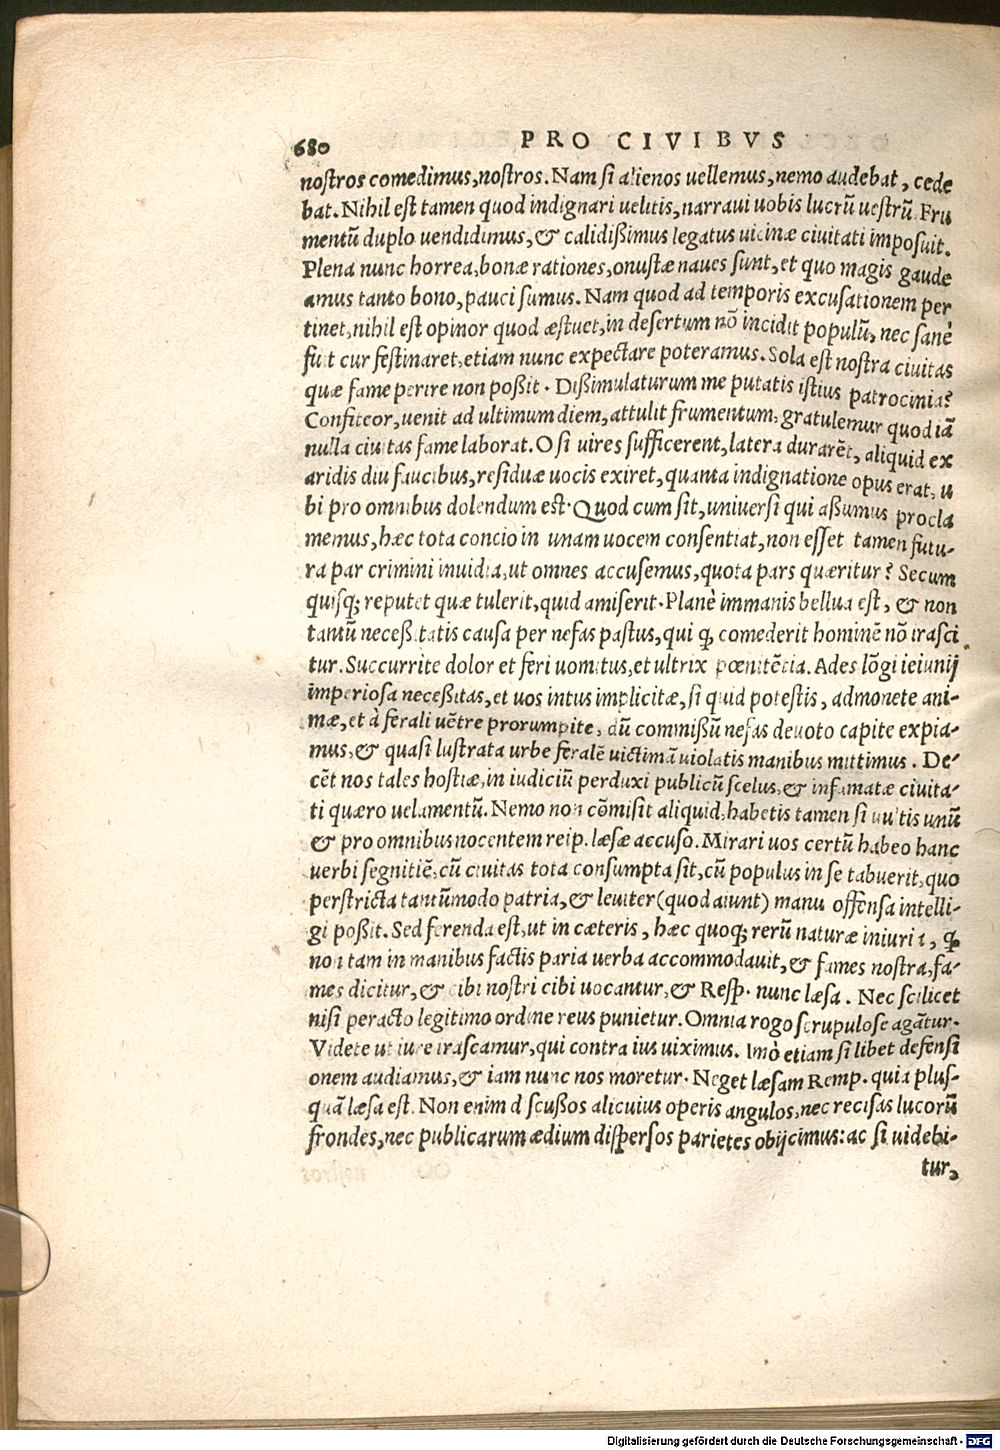 680 PRO CIVIBVS
nostros comedimus, nostros. Nam si alienos uellemus, nemo audebat, cede
bat. Nihil est tamen quod indignari uelitis, narraui uobis lucrũ uestrũ. Fru
mentũ duplo uendidimus, & calidißimus legatus uicinæ ciuitati imposuit.
Plena nunc horrea, bonæ rationes, onustæ naues sunt, et quo magis gaude
amus tanto bono, pauci sumus. Nam quod ad temporis excusationem per
tinet, nihil est opinor quod æstuet, in desertum nõ incidit populũ, nec sanè
fuit cur festinaret, etiam nunc expectare poteramus. Sola est nostra ciuitas
quæ fame perire non poßit. Dißimulaturum me putatis istius patrocinia?
Confiteor, uenit ad ultimum diem, attulit frumentum, gratulemur quod iã
nulla ciuitas fame laborat. O si uires sufficerent, latera durarẽt, aliquid ex
aridis diu faucibus, residuæ uocis exiret, quanta indignatione opus erat, u
bi pro omnibus dolendum est. Quod cum sit, uniuersi qui aßumus procla
memus, hæc tota concio in unam uocem consentiat, non esset tamen futu-
ra par crimini inuidia, ut omnes accusemus, quota pars quæritur? Secum
quisq; reputet quæ tulerit, quid amiserit. Planè immanis bellua est, & non
tantũ neceßitatis causa per nefas pastus, qui ꝙ comederit hominẽ nõ irasci
tur. Succurrite dolor et feri uomitus, et ultrix pœnitẽtia. Ades lõgi ieiunij
imperiosa neceßitas, et uos intus implicitæ, si quid potestis, admonete ani-
mæ, et à ferali uẽtre prorumpite, dũ commißũ nefas deuoto capite expia-
mus, & quasi lustrata urbe feralẽ uictimã uiolatis manibus mittimus. De-
cẽt nos tales hostiæ, in iudiciũ perduxi publicũ scelus, & infamatæ ciuita-
ti quæro uelamentũ. Nemo non cõmisit aliquid, habetis tamen si uultis unũ
& pro omnibus nocentem reip. læsæ accuso. Mirari uos certũ habeo hanc
uerbi segnitiẽ, cũ ciuitas tota consumpta sit, cũ populus in se tabuerit, quo
perstricta tantũmodo patria, & leuiter (quod aiunt) manu offensa intelli-
gi poßit. Sed ferenda est, ut in cæteris, hæc quoq; rerũ naturæ iniuria, ꝙ
non tam in manibus factis paria uerba accommodauit, & fames nostra, fa-
mes dicitur, & cibi nostri cibi uocantur, & Resp. nunc læsa. Nec scilicet
nisi peracto legitimo ordine reus punietur. Omnia rogo scrupulose agãtur.
Videte ut iure irascamur, qui contra ius uiximus. Imò etiam si libet defensi
onem audiamus, & iam nunc nos moretur. Neget læsam Remp. quia plus-
quã læsa est. Non enim discußos alicuius operis angulos, nec recisas lucorũ
frondes, nec publicarum ædium dispersos parietes obijcimus: ac si uidebi-
tur,
Digitalisierung gefördert durch die Deutsche Forschungsgemeinschaft - DFG